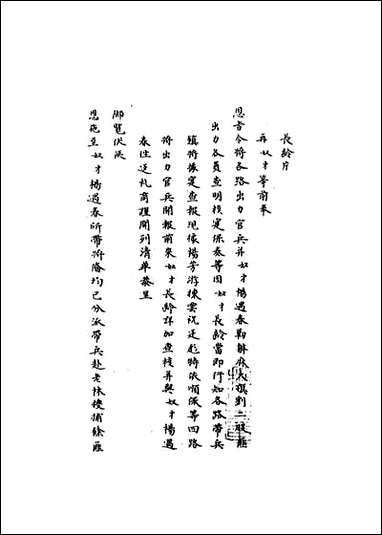 長齡片
再奴才等前奉
恩旨令將各路出力官兵并奴才楊遇春勦辦麻大旗劉二股匪
出力各員查明核定保奏等因奴才長齡當即行知各路帶兵
鎮將據實查報現據楊芳游棟雲祝廷彪特依順保等四路
將出力官兵開報前來奴才長齡詳加查核并與奴才楊遇
春往返札商謹開列清單恭呈
御覽伏候
恩施至奴才楊遇春所帶將備均已分派帶兵赴老林搜捕餘匪